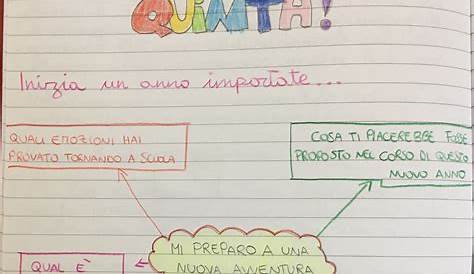 QUINTA!
Inizia un anno importate...
QUALI EMOZIONI HAI
PROVATO TORNANDO A SCUOLA
COSA TI PIACEREBBE FOSSE
PROPOSTO NEL CORSO DI QUESTO
NUOVO ANNO
MI PREPARO A UNA
NUOVA AVVENTURA
QUAL È